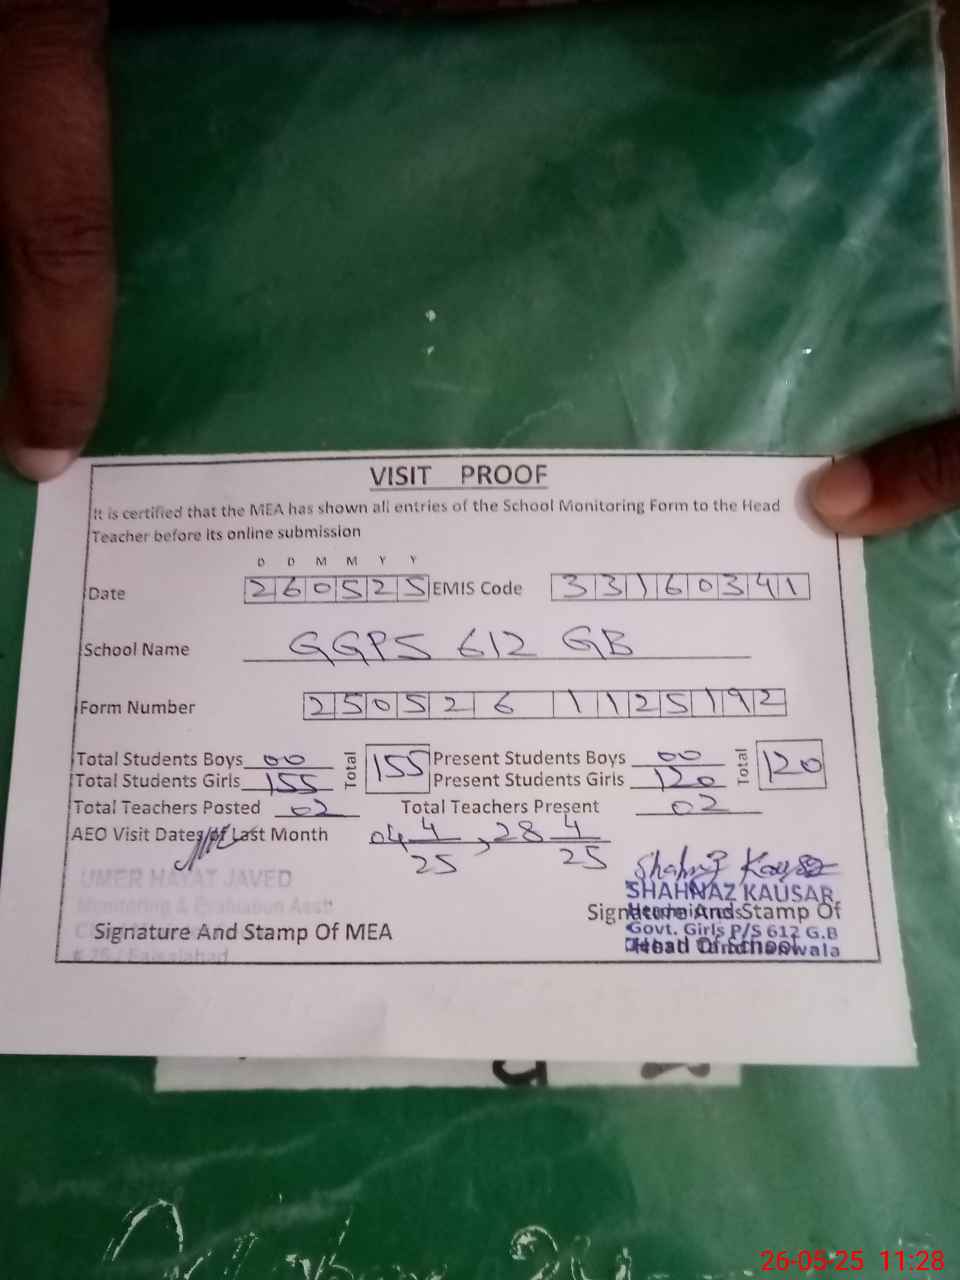 VISIT PROOF
It is certified that the MEA has shown all entries of the School Monitoring Form to the Head
Teacher before its online submission
D D M M Y Y
Date 260525 EMIS Code 33160341
School Name GGPS 612 GB
Form Number 250526 1125192
Total Students Boys 00 Total 155 Present Students Boys 00 Total 120
Total Students Girls 155 Present Students Girls 120
Total Teachers Posted 02 Total Teachers Present 02
AEO Visit Dates of Last Month 04 4/25, 28 4/25
Shahnaz Kausar
UMER HAYAT JAVED
SHAHNAZ KAUSAR
Monitoring & Evaluation Asstt
Signature And Stamp Of
Govt. Girls P/S 612 G.B
Signature And Stamp Of MEA
Head Of School
26-05-25 11:28